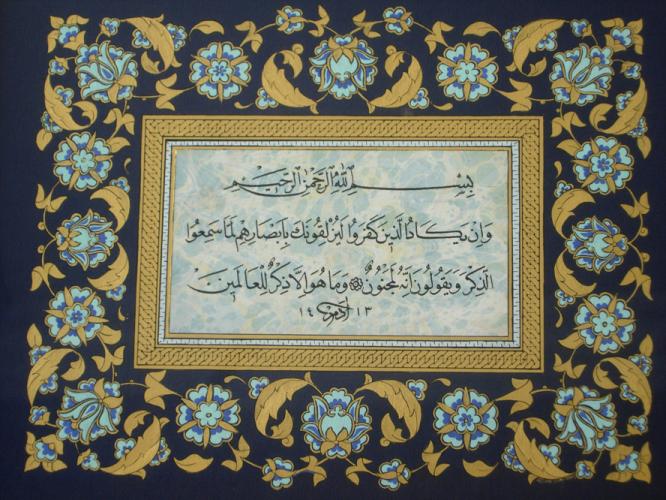 بسم الله الرحمن الرحيم
وَاِنْ يَكَادُ الَّذِينَ كَفَرُوا لَيُزْلِقُونَكَ بِاَبْصَارِهِمْ لَمَّا سَمِعُوا
الذِّكْرَ وَيَقُولُونَ اِنَّهُ لَمَجْنُونٌ وَمَا هُوَ اِلَّا ذِكْرٌ لِلْعَالَمِينَ